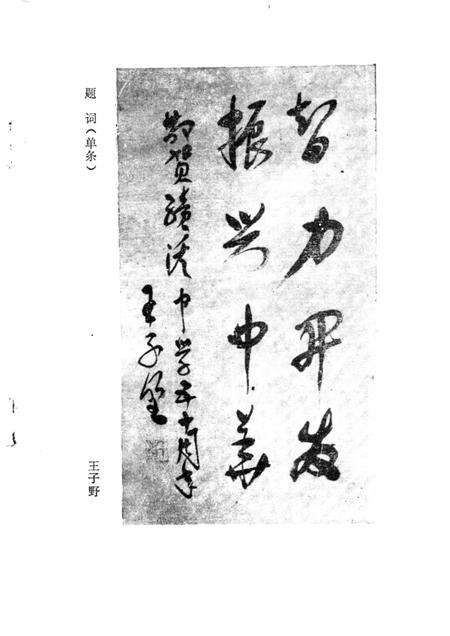 智力开发
振兴中华
敬贺绩溪中学五十周年
王子野
题词（单条）
王子野